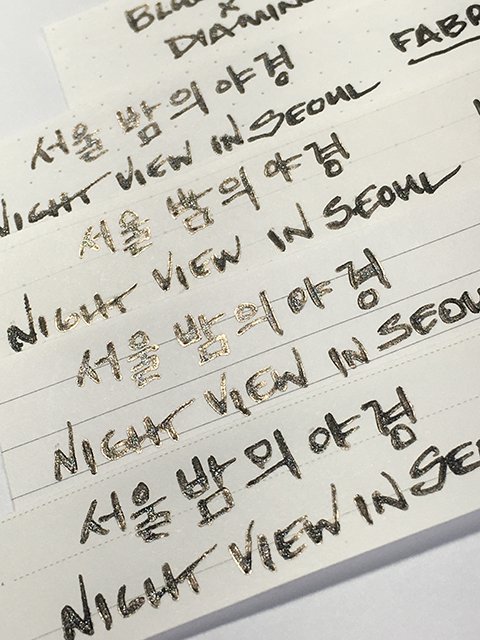 ×
DIAMIN
FABR
서울 밤의 야경
NIGHT VIEW IN SEOUL
서울 밤의 야경
NIGHT VIEW IN SEOUL
서울 밤의 야경
NIGHT VIEW IN SEOU
서울 밤의 야경
NIGHT VIEW IN SE